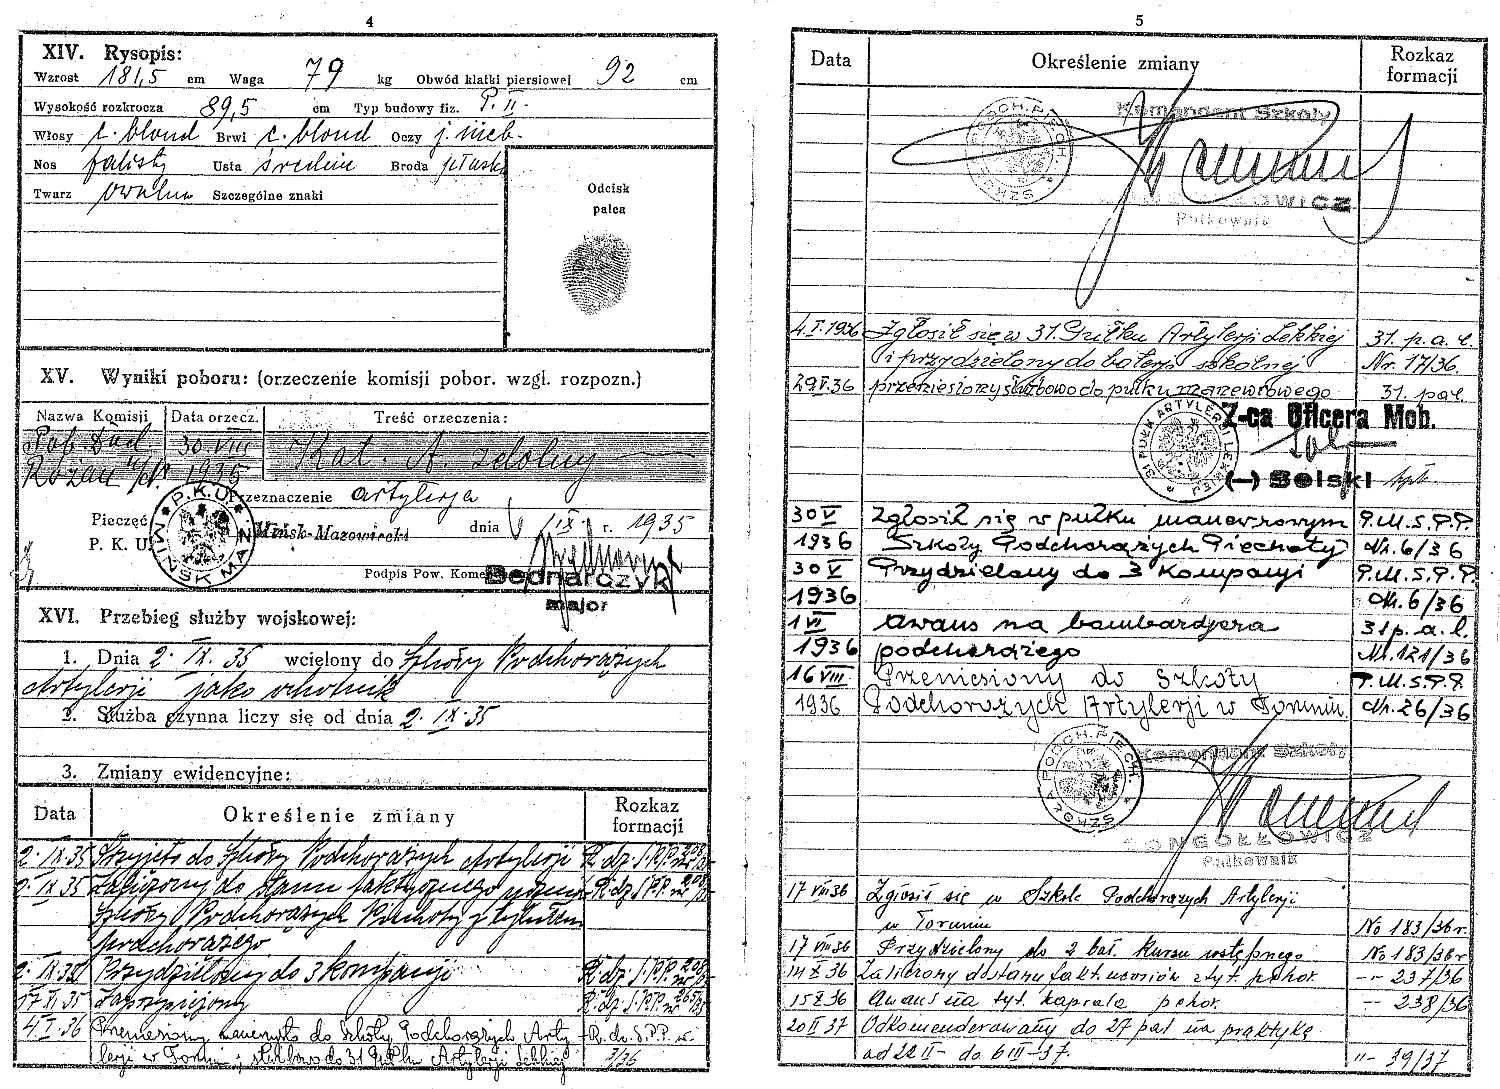 4
XIV. Rysopis:
Wzrost 181,5 cm Waga 79 kg Obwód klatki piersiowej 92 cm
Wysokość rozkrocza 89,5 cm Typ budowy fiz. P. II.
Włosy c. blond Brwi c. blond Oczy j. nieb.
Nos falisty Usta średnie Broda płaska
Twarz owalna Szczególne znaki
Odcisk
palca
XV. Wyniki poboru: (orzeczenie komisji pobor. wzgl. rozpozn.)
Nazwa Komisji Data orzecz. Treść orzeczenia:
30 VIII Kat. A. zdolny
Różan 1935
Przeznaczenie artylerja
Pieczęć
P. K. U.
P.K.U. MIŃSK MAZ.
Mińsk-Mazowiecki dnia IX r. 1935
Podpis Pow. Kome
Bednarczyk
major
XVI. Przebieg służby wojskowej:
1. Dnia 2. IX. 35 wcielony do Szkoły Podchorążych
Artylerji jako ochotnik
2. Służba czynna liczy się od dnia 2. IX. 35
3. Zmiany ewidencyjne:
Data Określenie zmiany Rozkaz
formacji
2. IX 35 Przyjęto do Szkoły Podchorążych Artylerji
2. IX 35 zaliczony do stanu faktycznego
Szkoły Podchorążych Piechoty z tytułem
podchorążego
2. IX 35 Przydzielony do 3 kompanji
17 XI 35 Zaprzysiężony
4 I. 36 Przeniesiony do Szkoły Podchorążych Arty
lerji w Toruniu, służbowo do 31 Pułku Artylerji Lekkiej 3/36
5
Data Określenie zmiany Rozkaz
formacji
SZKOŁA PODCH. PIECH.
Komendant Szkoły
Pułkownik
4.I.1936 Zgłosił się w 31. Pułku Artylerji Lekkiej 31. p. a. l.
i przydzielony do baterji szkolnej Nr. 17/36.
29 V. 36 przeniesiony służbowo do pułku manewrowego 31. pal.
31 PUŁK ARTYLERJI LEKKIEJ
Z-ca Oficera Mob.
(—) Solski kpt.
30 V Zgłosił się w pułku manewrowym P.M.S.P.P.
1936 Szkoły Podchorążych Piechoty Nr. 6/36
30 V Przydzielony do 3 kompanji P.M.S.P.P.
1936 Nr. 6/36
1 VI awans na bombardjera 31 p. a. l.
1936 podchorążego Nr. 121/36
16 VIII Przeniesiony do Szkoły P.M.S.P.P.
1936 Podchorążych Artylerji w Toruniu Nr. 26/36
SZKOŁA PODCH. PIECH.
Komendant Szkoły
BONGOŁŁOWICZ
Pułkownik
17 VIII 36 Zgłosił się w Szkole Podchorążych Artylerji
w Toruniu No 183/36 r.
17 VIII 36 Przydzielony do 2 bat. kursu wstępnego No 183/36 r
14 X 36 Zaliczony do stanu fakt. uczniów z tyt. pchor. -- 237/36
15 X 36 Awans na tyt. kaprala pchor. -- 238/36
20 II 37 Odkomenderowany do 27 pal na praktykę
od 22 II - do 6 III - 37. "- 39/37